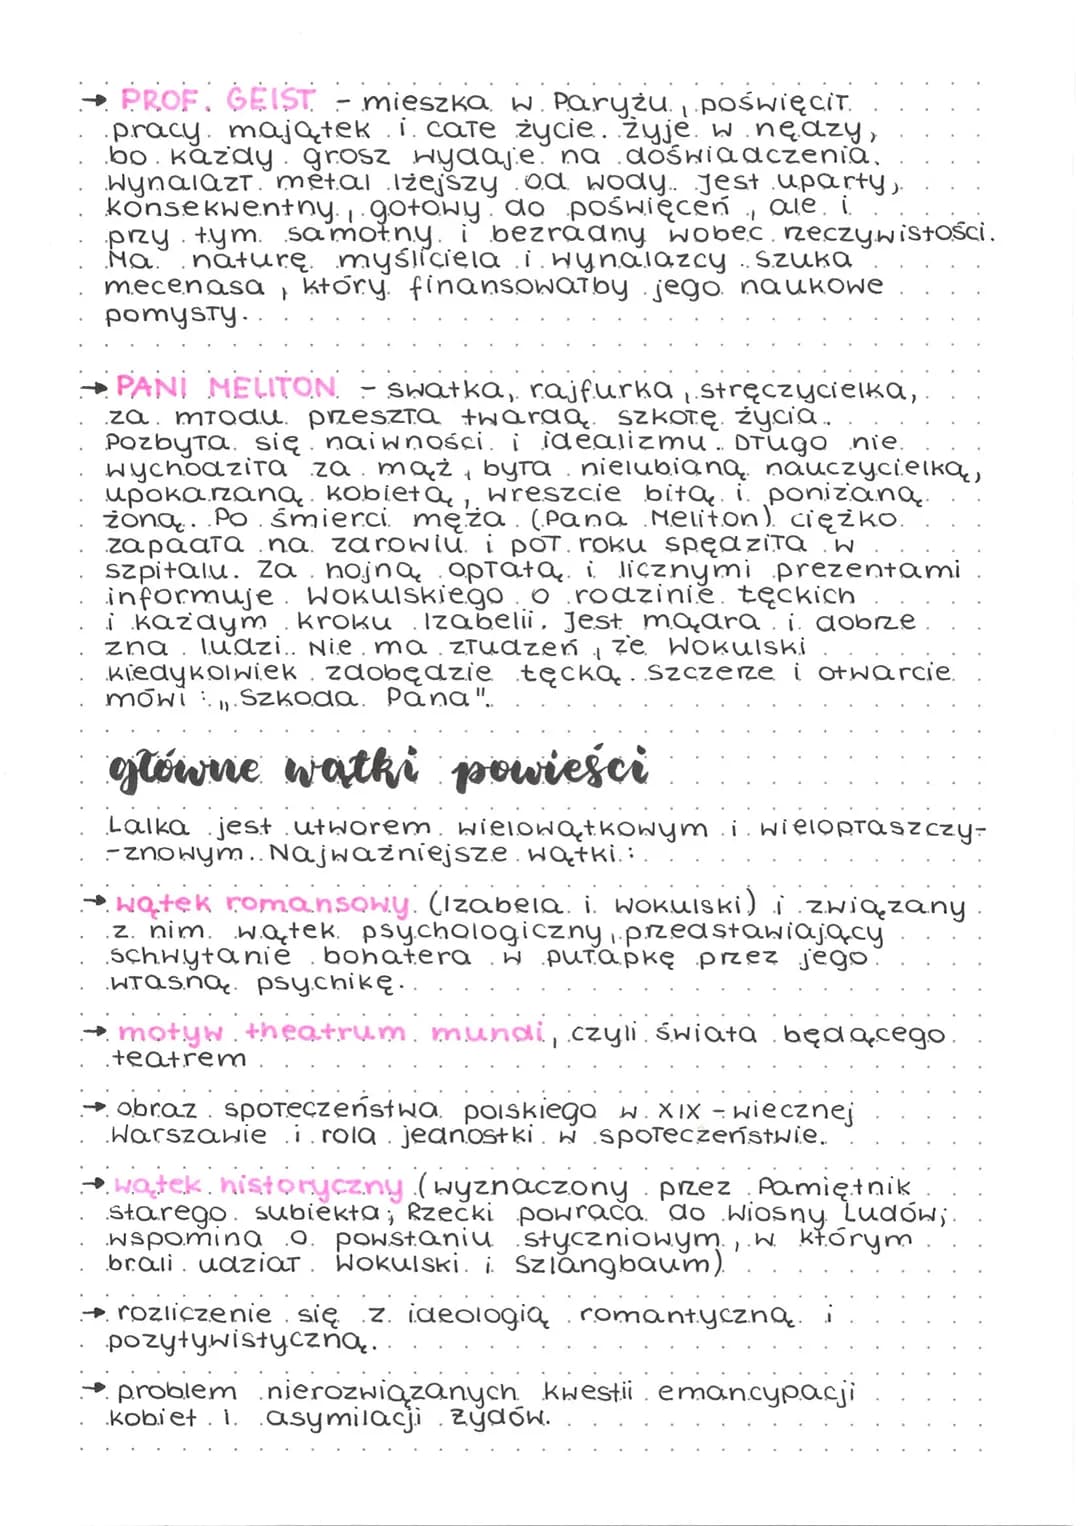 → PROF. GEIST - mieszka w Paryżu, poświęcił
pracy majątek i całe życie. Żyje w nędzy,
bo każdy grosz wydaje na doświadczenia.
Wynalazł metal lżejszy od wody. Jest uparty,
konsekwentny, gotowy do poświęceń, ale i
przy tym samotny i bezradny wobec rzeczywistości.
Ma naturę myśliciela i wynalazcy. Szuka
mecenasa, który finansowałby jego naukowe
pomysły.
→ PANI MELITON - swatka, rajfurka, stręczycielka,
za młodu przeszła twardą szkołę życia.
Pozbyła się naiwności i idealizmu. Długo nie
wychodziła za mąż, była nielubianą nauczycielką,
upokarzaną kobietą, wreszcie bitą i poniżaną
żoną. Po śmierci męża (Pana Meliton) ciężko
zapadła na zdrowiu i pół roku spędziła w
szpitalu. Za hojną opłatą i licznymi prezentami
informuje Wokulskiego o rodzinie Łęckich
i każdym kroku Izabelii. Jest mądra i dobrze
zna ludzi. Nie ma złudzeń, że Wokulski
kiedykolwiek zdobędzie Łęcką. Szczerze i otwarcie
mówi: „Szkoda Pana".
główne wątki powieści
Lalka jest utworem wielowątkowym i wielopłaszczy-
-znowym. Najważniejsze wątki:
→ wątek romansowy (Izabela i Wokulski) i związany
z nim wątek psychologiczny, przedstawiający
schwytanie bohatera w pułapkę przez jego
własną psychikę.
→ motyw theatrum mundi, czyli świata będącego
teatrem
→ obraz społeczeństwa polskiego w XIX - wiecznej
Warszawie i rola jednostki w społeczeństwie.
→ wątek historyczny (wyznaczony przez Pamiętnik
starego subiekta; Rzecki powraca do Wiosny Ludów;
wspomina o powstaniu styczniowym, w którym
brali udział Wokulski i Szlangbaum)
→ rozliczenie się z ideologią romantyczną i
pozytywistyczną.
→ problem nierozwiązanych kwestii emancypacji
kobiet i asymilacji Żydów.